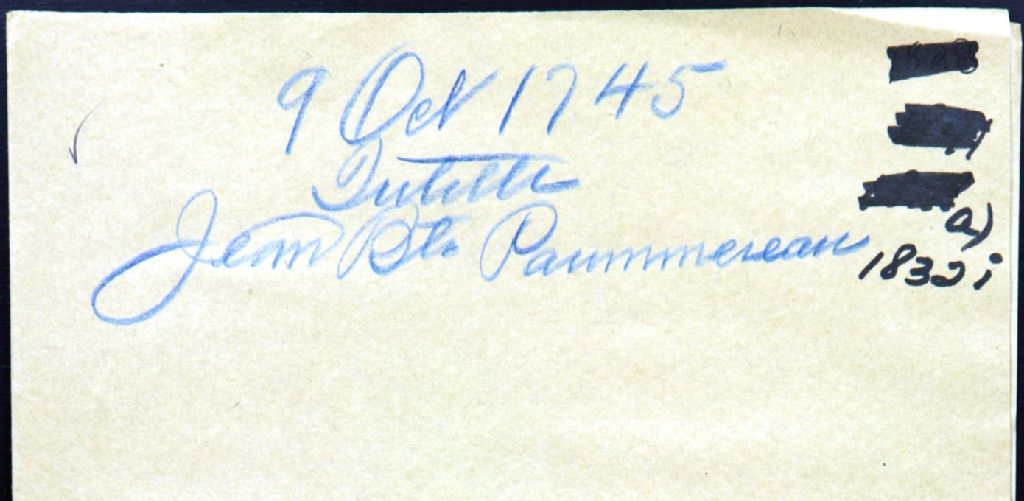 9 Oct 1745
Tutelle
Jean Bte Paummereau
a)
1832 i